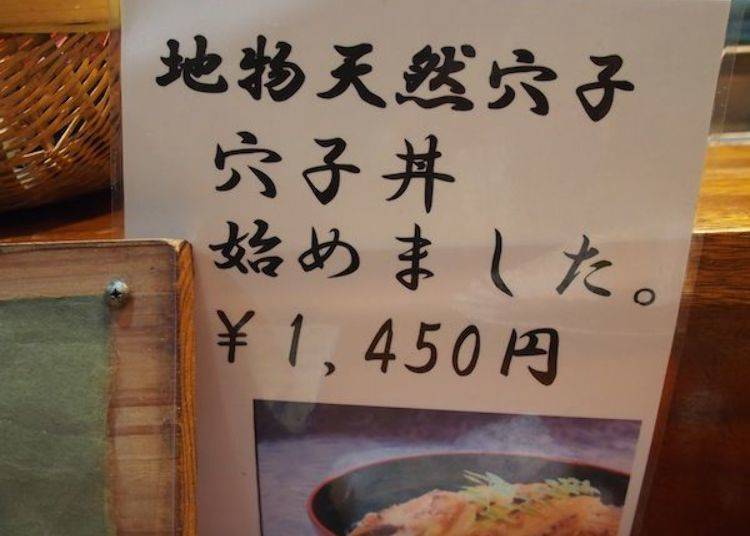 地物天然穴子
穴子丼
始めました。
¥1,450円